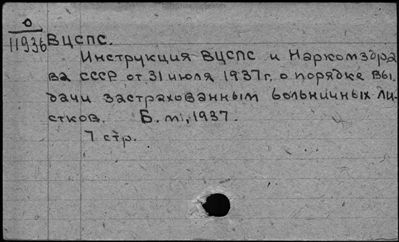 О
11936
ВЦСПС.
Инструкция ВЦСПС и Наркомздра
ва СССР от 31 июля 1937г. о порядке вы,
дачи застрахованным больничных ли-
стков. Б.м., 1937.
7 стр.